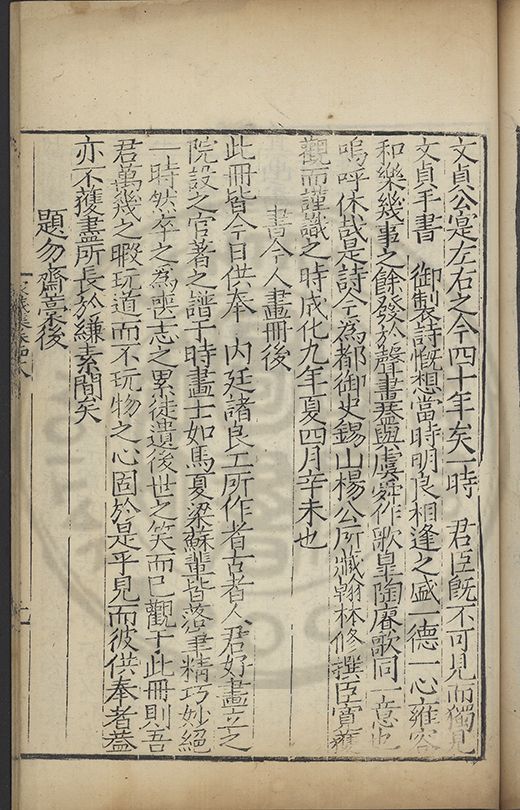 文貞公寔左右之今四十年矣一時　君臣旣不可見而獨見
文貞手書　御製詩慨想當時明良相逢之盛一德一心雍容
和樂幾事之餘發於聲書葢與虞舜作歌臯陶賡歌同一意也
嗚呼休哉是詩今為都御史錫山楊公所藏翰林修撰臣寬獲
觀而謹識之時成化九年夏四月辛未也
書今人畫冊後
此冊皆今日供奉　內廷諸良工所作者古者人君好畫立之
院設之官著之譜于時畫士如馬夏梁蘇輩皆落筆精巧妙絕
一時然卒之為喪志之累徒遺後世之笑而已觀于此冊則吾
君萬幾之暇玩道而不玩物之心固於是乎見而彼供奉者葢
亦不獲盡所長於縑素間矣
題勿齋藁後